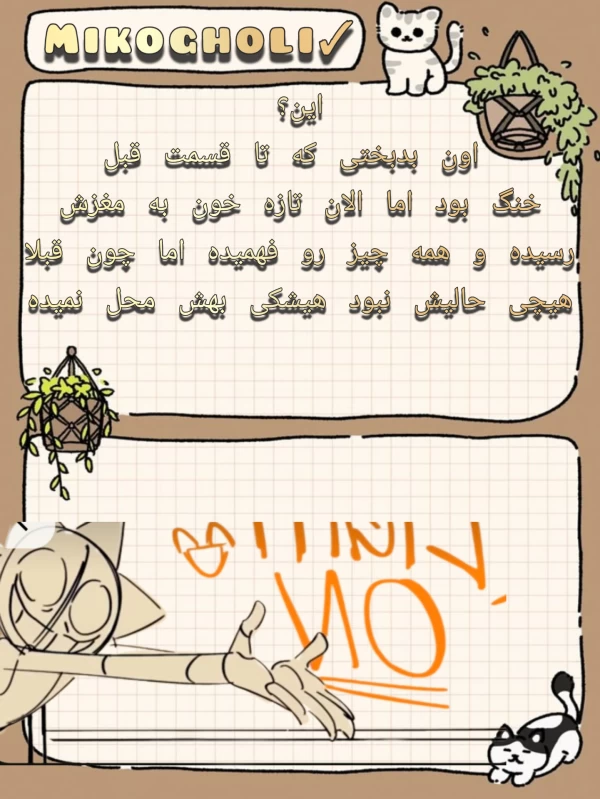 MIKOGHOLI✓
این؟
اون بدبختی که تا قسمت قبل
خنگ بود اما الان تازه خون به مغزش
رسیده و همه چیز رو فهمیده اما چون قبلا
هیچی حالیش نبود هیشکی بهش محل نمیده
NO